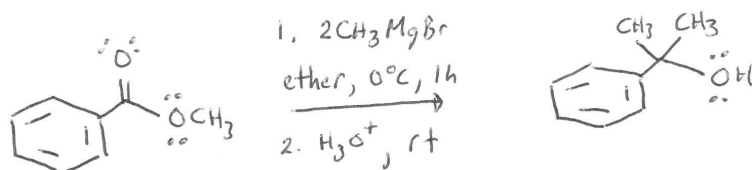 O
OCH3
1. 2CH3MgBr
ether, 0°C, 1h
2. H3O+, rt
CH3
CH3
OH